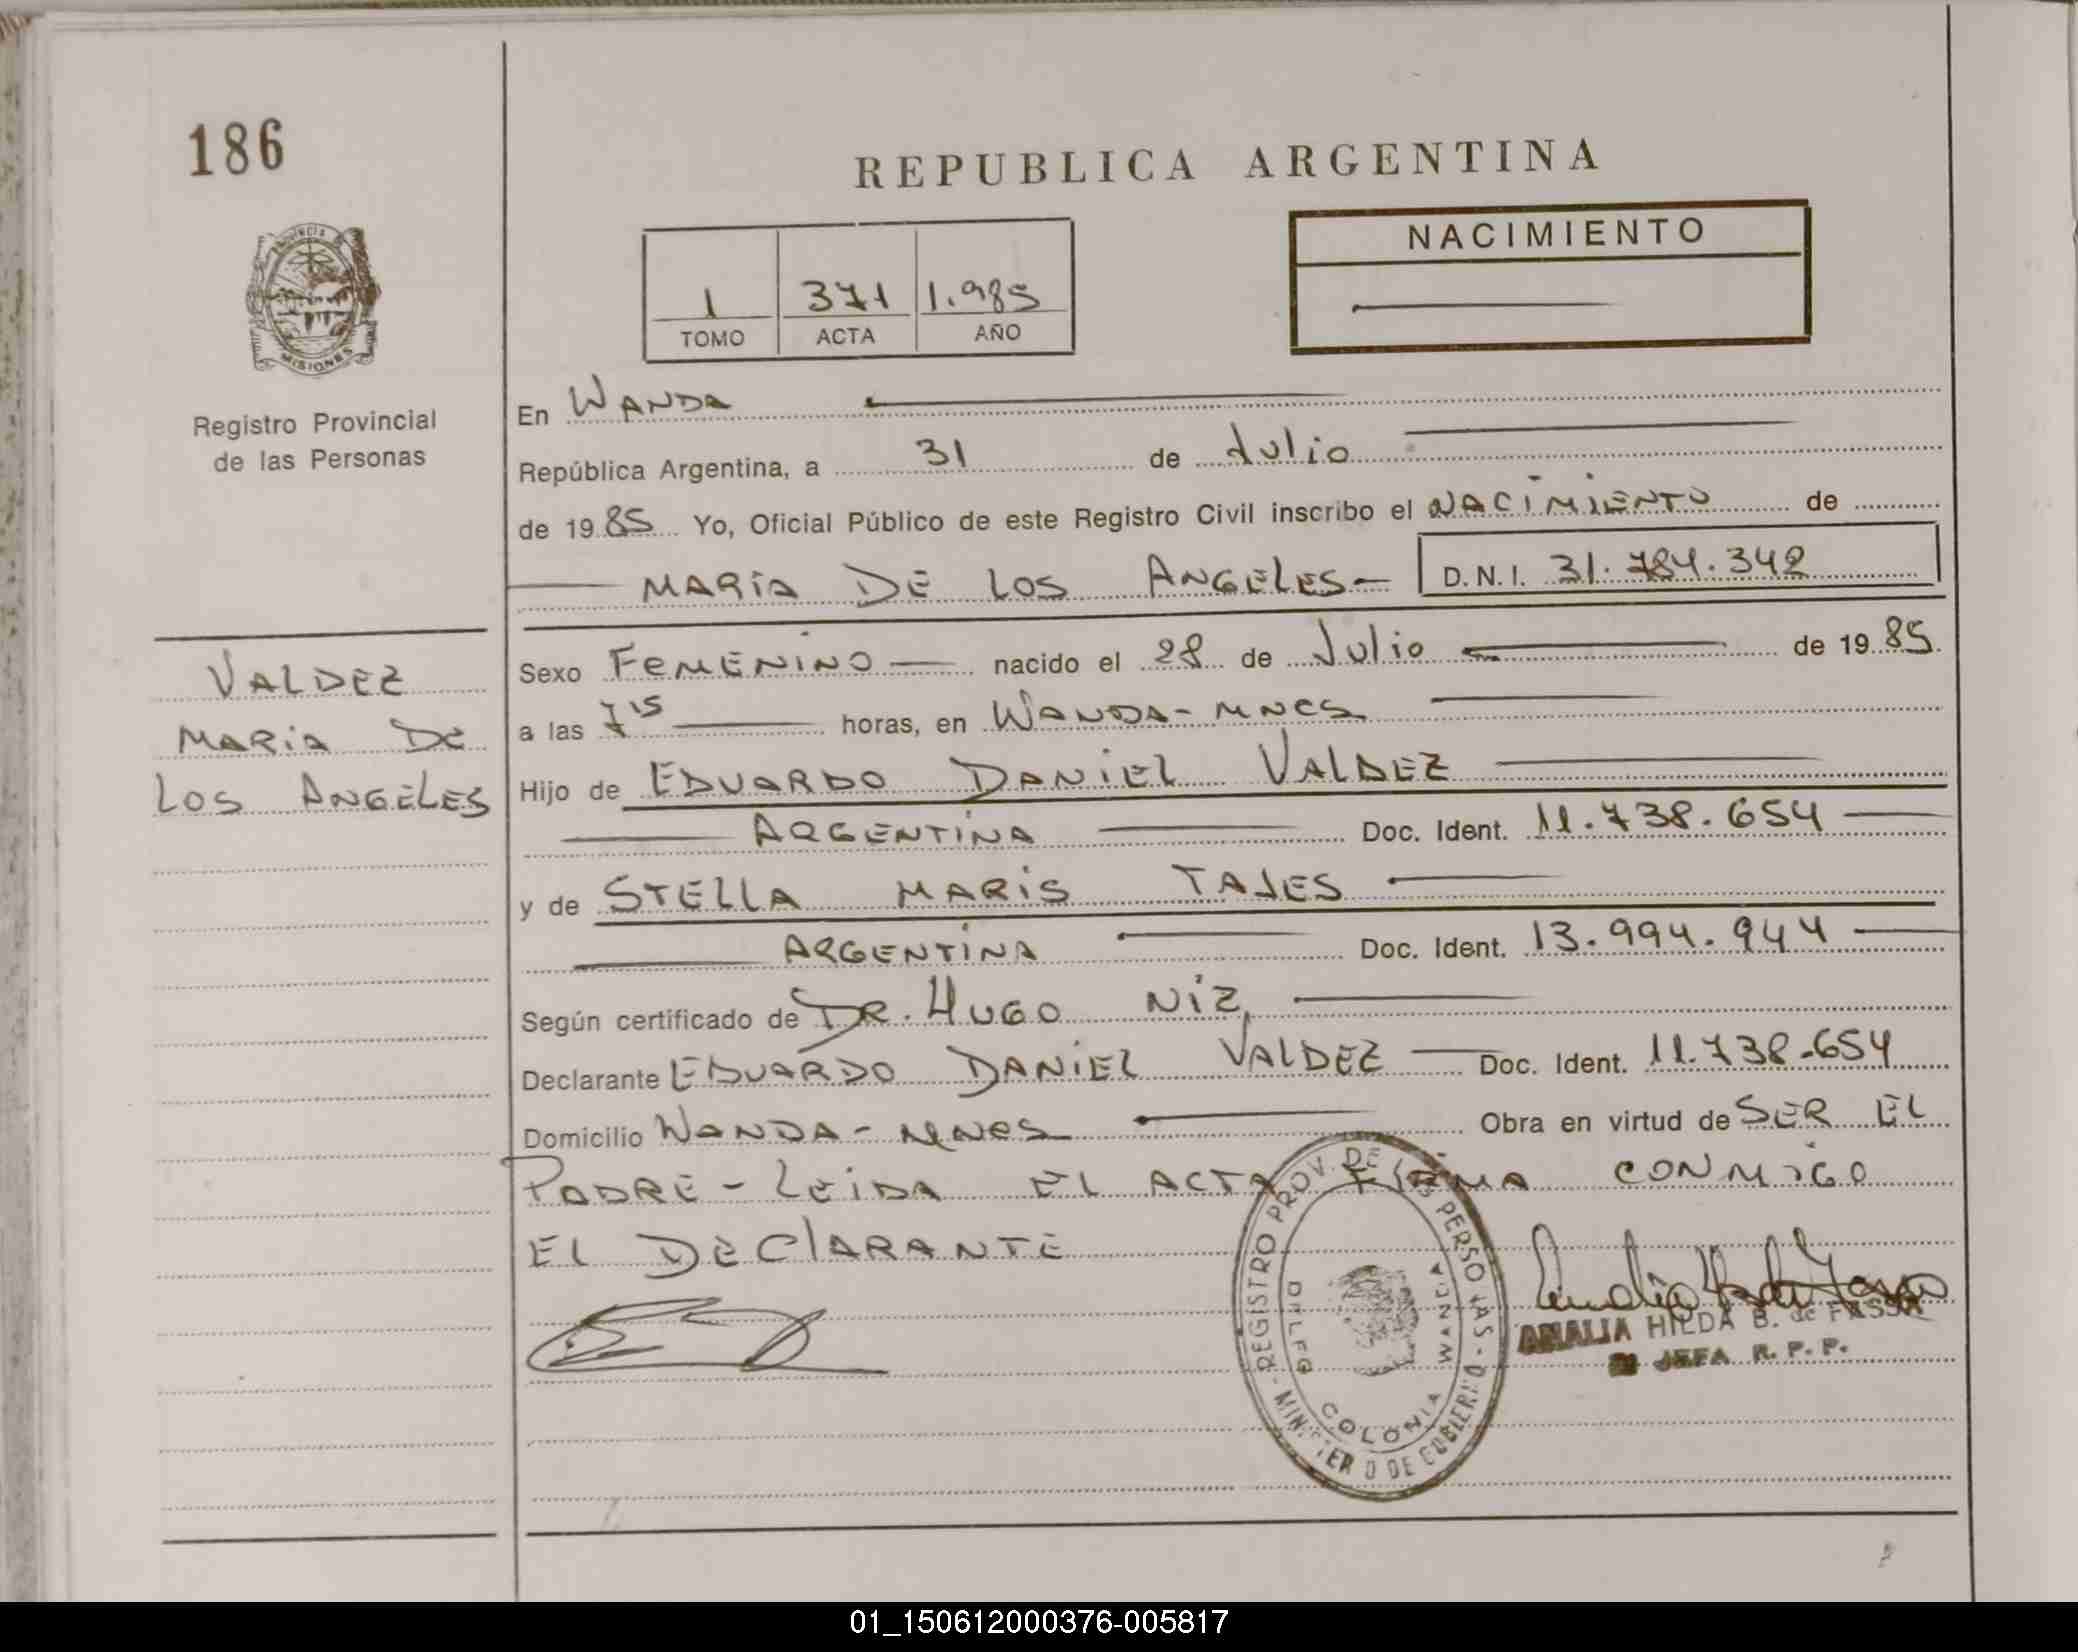 186
REPUBLICA ARGENTINA
PROVINCIA DE
MISIONES
Registro Provincial
de las Personas
1 371 1.985
TOMO ACTA AÑO
NACIMIENTO
En WANDA
República Argentina, a 31 de Julio
de 19 85 Yo, Oficial Público de este Registro Civil inscribo el NACIMIENTO de
MARIA DE LOS ANGELES D.N.I. 31.784.342
VALDEZ
MARIA DE
LOS ANGELES
Sexo FEMENINO nacido el 28 de Julio de 19 85
a las 7 15 horas, en WANDA - MNES
Hijo de EDUARDO DANIEL VALDEZ
ARGENTINA Doc. Ident. 11.738.654
y de STELLA MARIS TAJES
ARGENTINA Doc. Ident. 13.994.944
Según certificado de DR. HUGO NIZ
Declarante EDUARDO DANIEL VALDEZ Doc. Ident. 11.738.654
Domicilio WANDA - MNES Obra en virtud de SER EL
PADRE - LEIDA EL ACTA FIRMA CONMIGO
EL DECLARANTE
REGISTRO PROV. DE LAS PERSONAS - MINISTERIO DE GOBIERNO
DELEG COLONIA WANDA
AMALIA HILDA B. de FASSA
JEFA R. P. P.
01_150612000376-005817